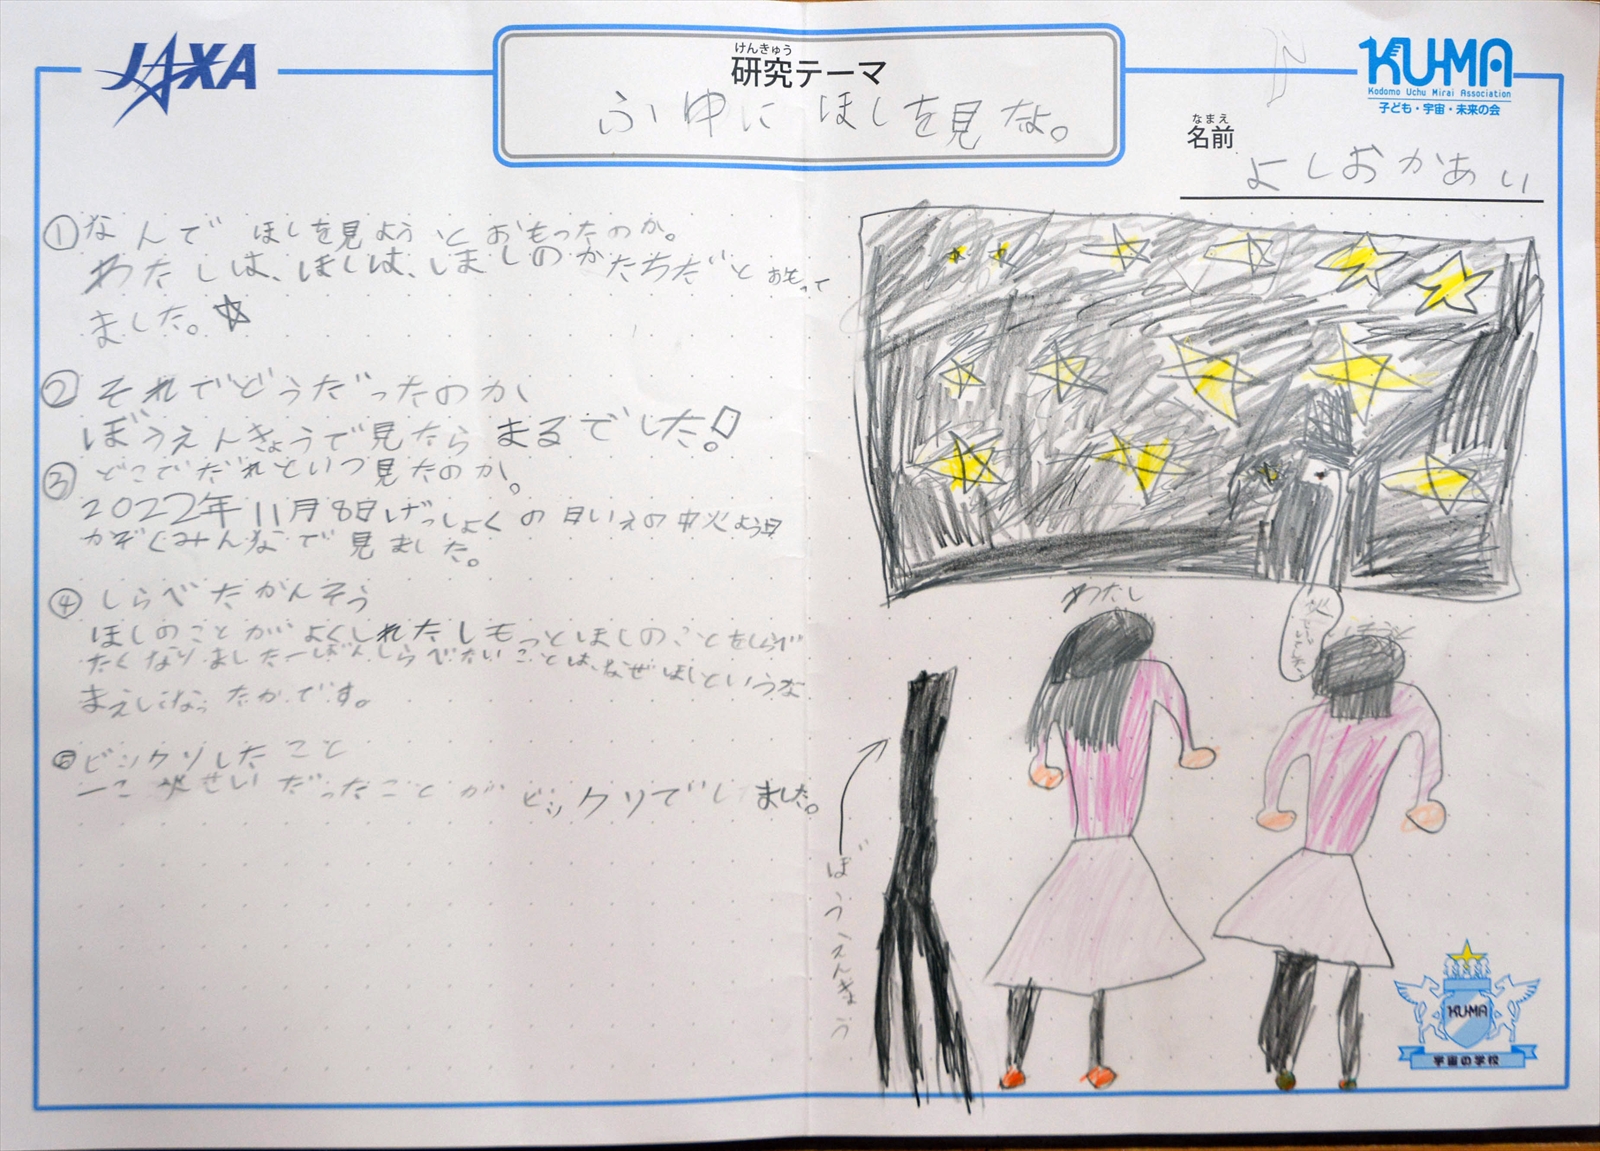 JAXA
けんきゅう
研究テーマ
ふゆに ほしを見たよ。
KU-MA
Kodomo Uchu Mirai Association
子ども・宇宙・未来の会
なまえ
名前
よしおかあい
①なんで ほしを見ようとおもったのか。
わたしは、ほしは、ほしのかたちだとおもって
ました。☆
②それでどうだったのか
ぼうえんきょうで見たらまるでした!
③どこでだれといつ見たのか。
2022年11月8日げっしょくの日いえの中火よう日
かぞくみんなで見ました。
④しらべたかんそう
ほしのことがよくしれたしもっとほしのことをしらべ
たくなりました一ばんしらべたいことは、なぜほしというな
まえになったかです。
⑤ビックリしたこと
一こ がせいだったことがビックリでしました。
わたし
ぼうえんきょう
KU-MA
宇宙の学校